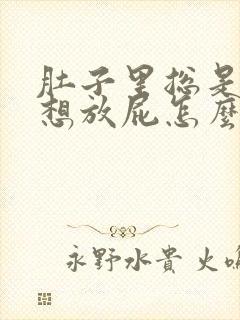 肚子里总是
想放屁怎麼
永野水貴 火